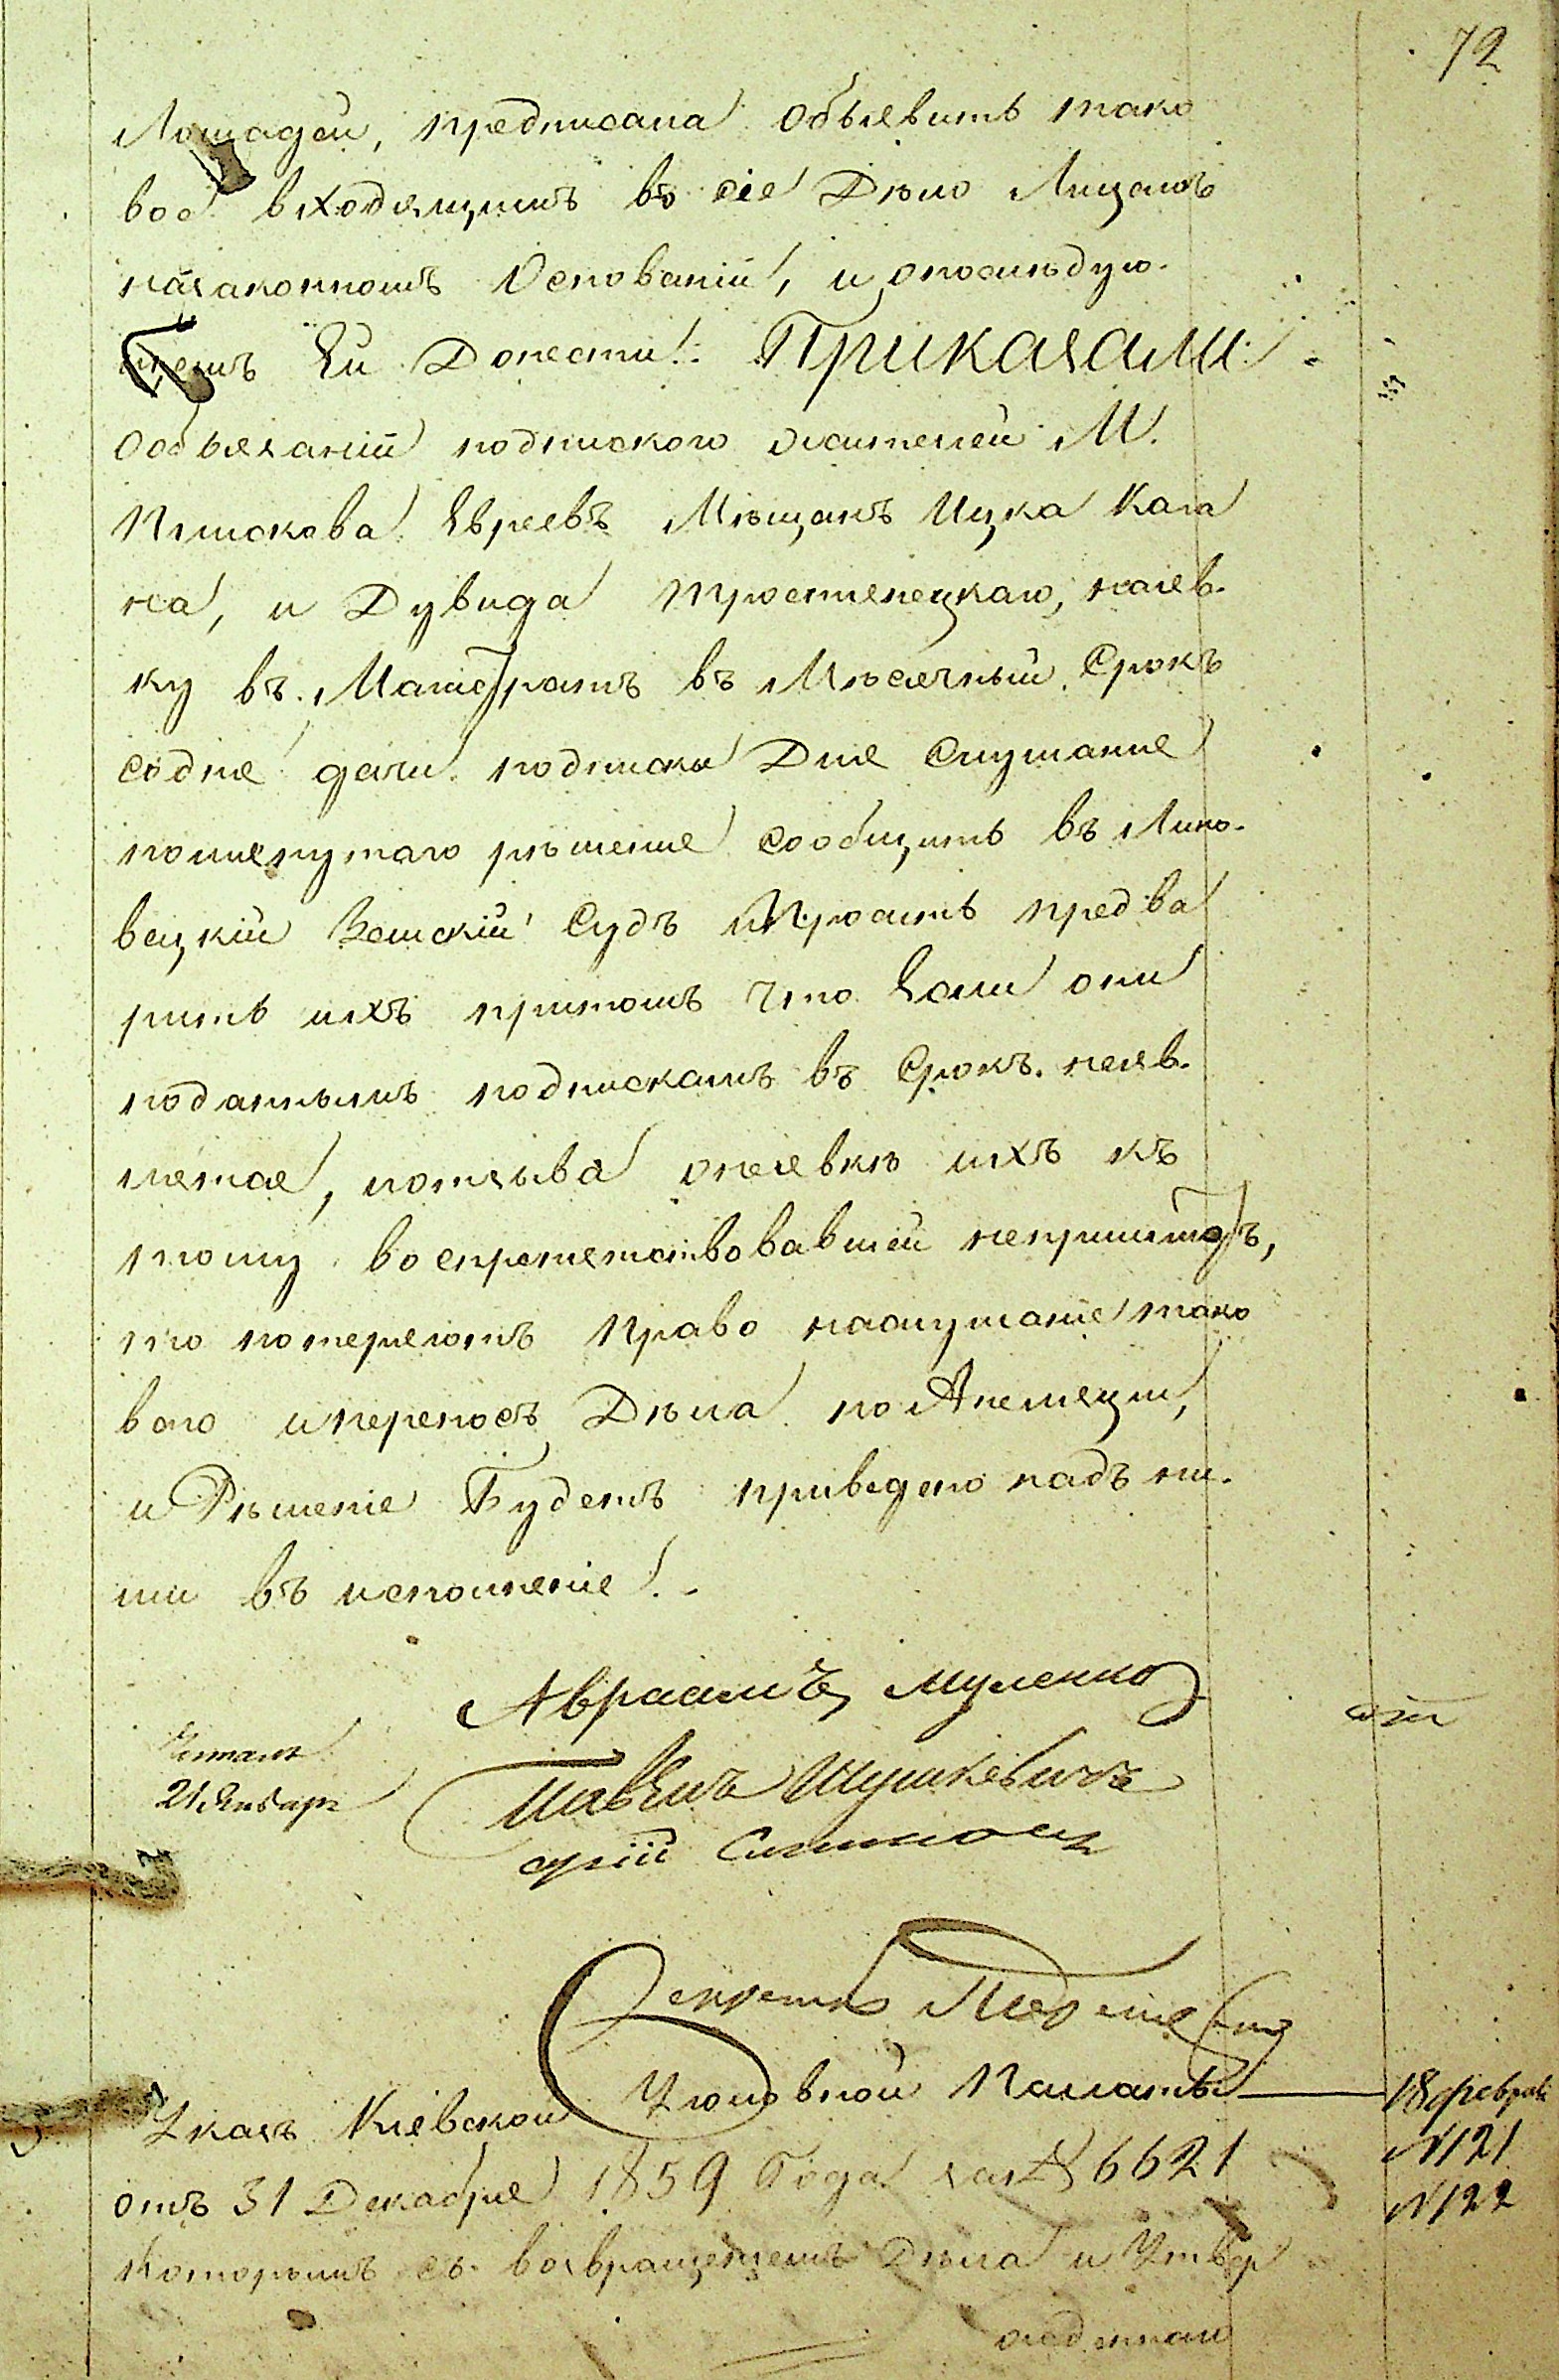 72
Лошадей, предписала Объявить тако
вое входящимъ въ сіе Дѣло Лицамъ
назаконномъ Основаніи, и опослѣдую-
щемъ Ей Донести. Приказали:
Ообъязаніи подпискою жителей М.
Плискова Евреевъ Мѣщанъ Ицка Кага
на, и Дувида Тростенецкаго, наяв-
ку въ Магистратъ въ Мѣсячный Срокъ
содня дачи подписки Для Слушанія
помянутаго рѣшенія сообщить въ Липо-
вецкій Земскій Судъ и Просить предва
рить ихъ притомъ что Если они
поданнымъ подпискамъ въ Срокъ неяв-
лятся, и отзыва онеявкѣ ихъ къ
тому воспрепятствовавшей непришлютъ,
то потеряютъ Право наслушаніе тако
ваго и переносъ Дѣла по Апеляціи,
и Рѣшеніе Будетъ приведено надъ ни-
ми въ исполненіе.
Авраамъ
Читалъ
21 Январ
Павелъ
Секретарь
Указъ Кіевской Уголовной Палаты — 18 феврал
отъ 31 Декабря 1859 Года за № 6621 N 121
N 122
Которымъ съ возвращеніемъ Дѣла и Утвер
жденнаго